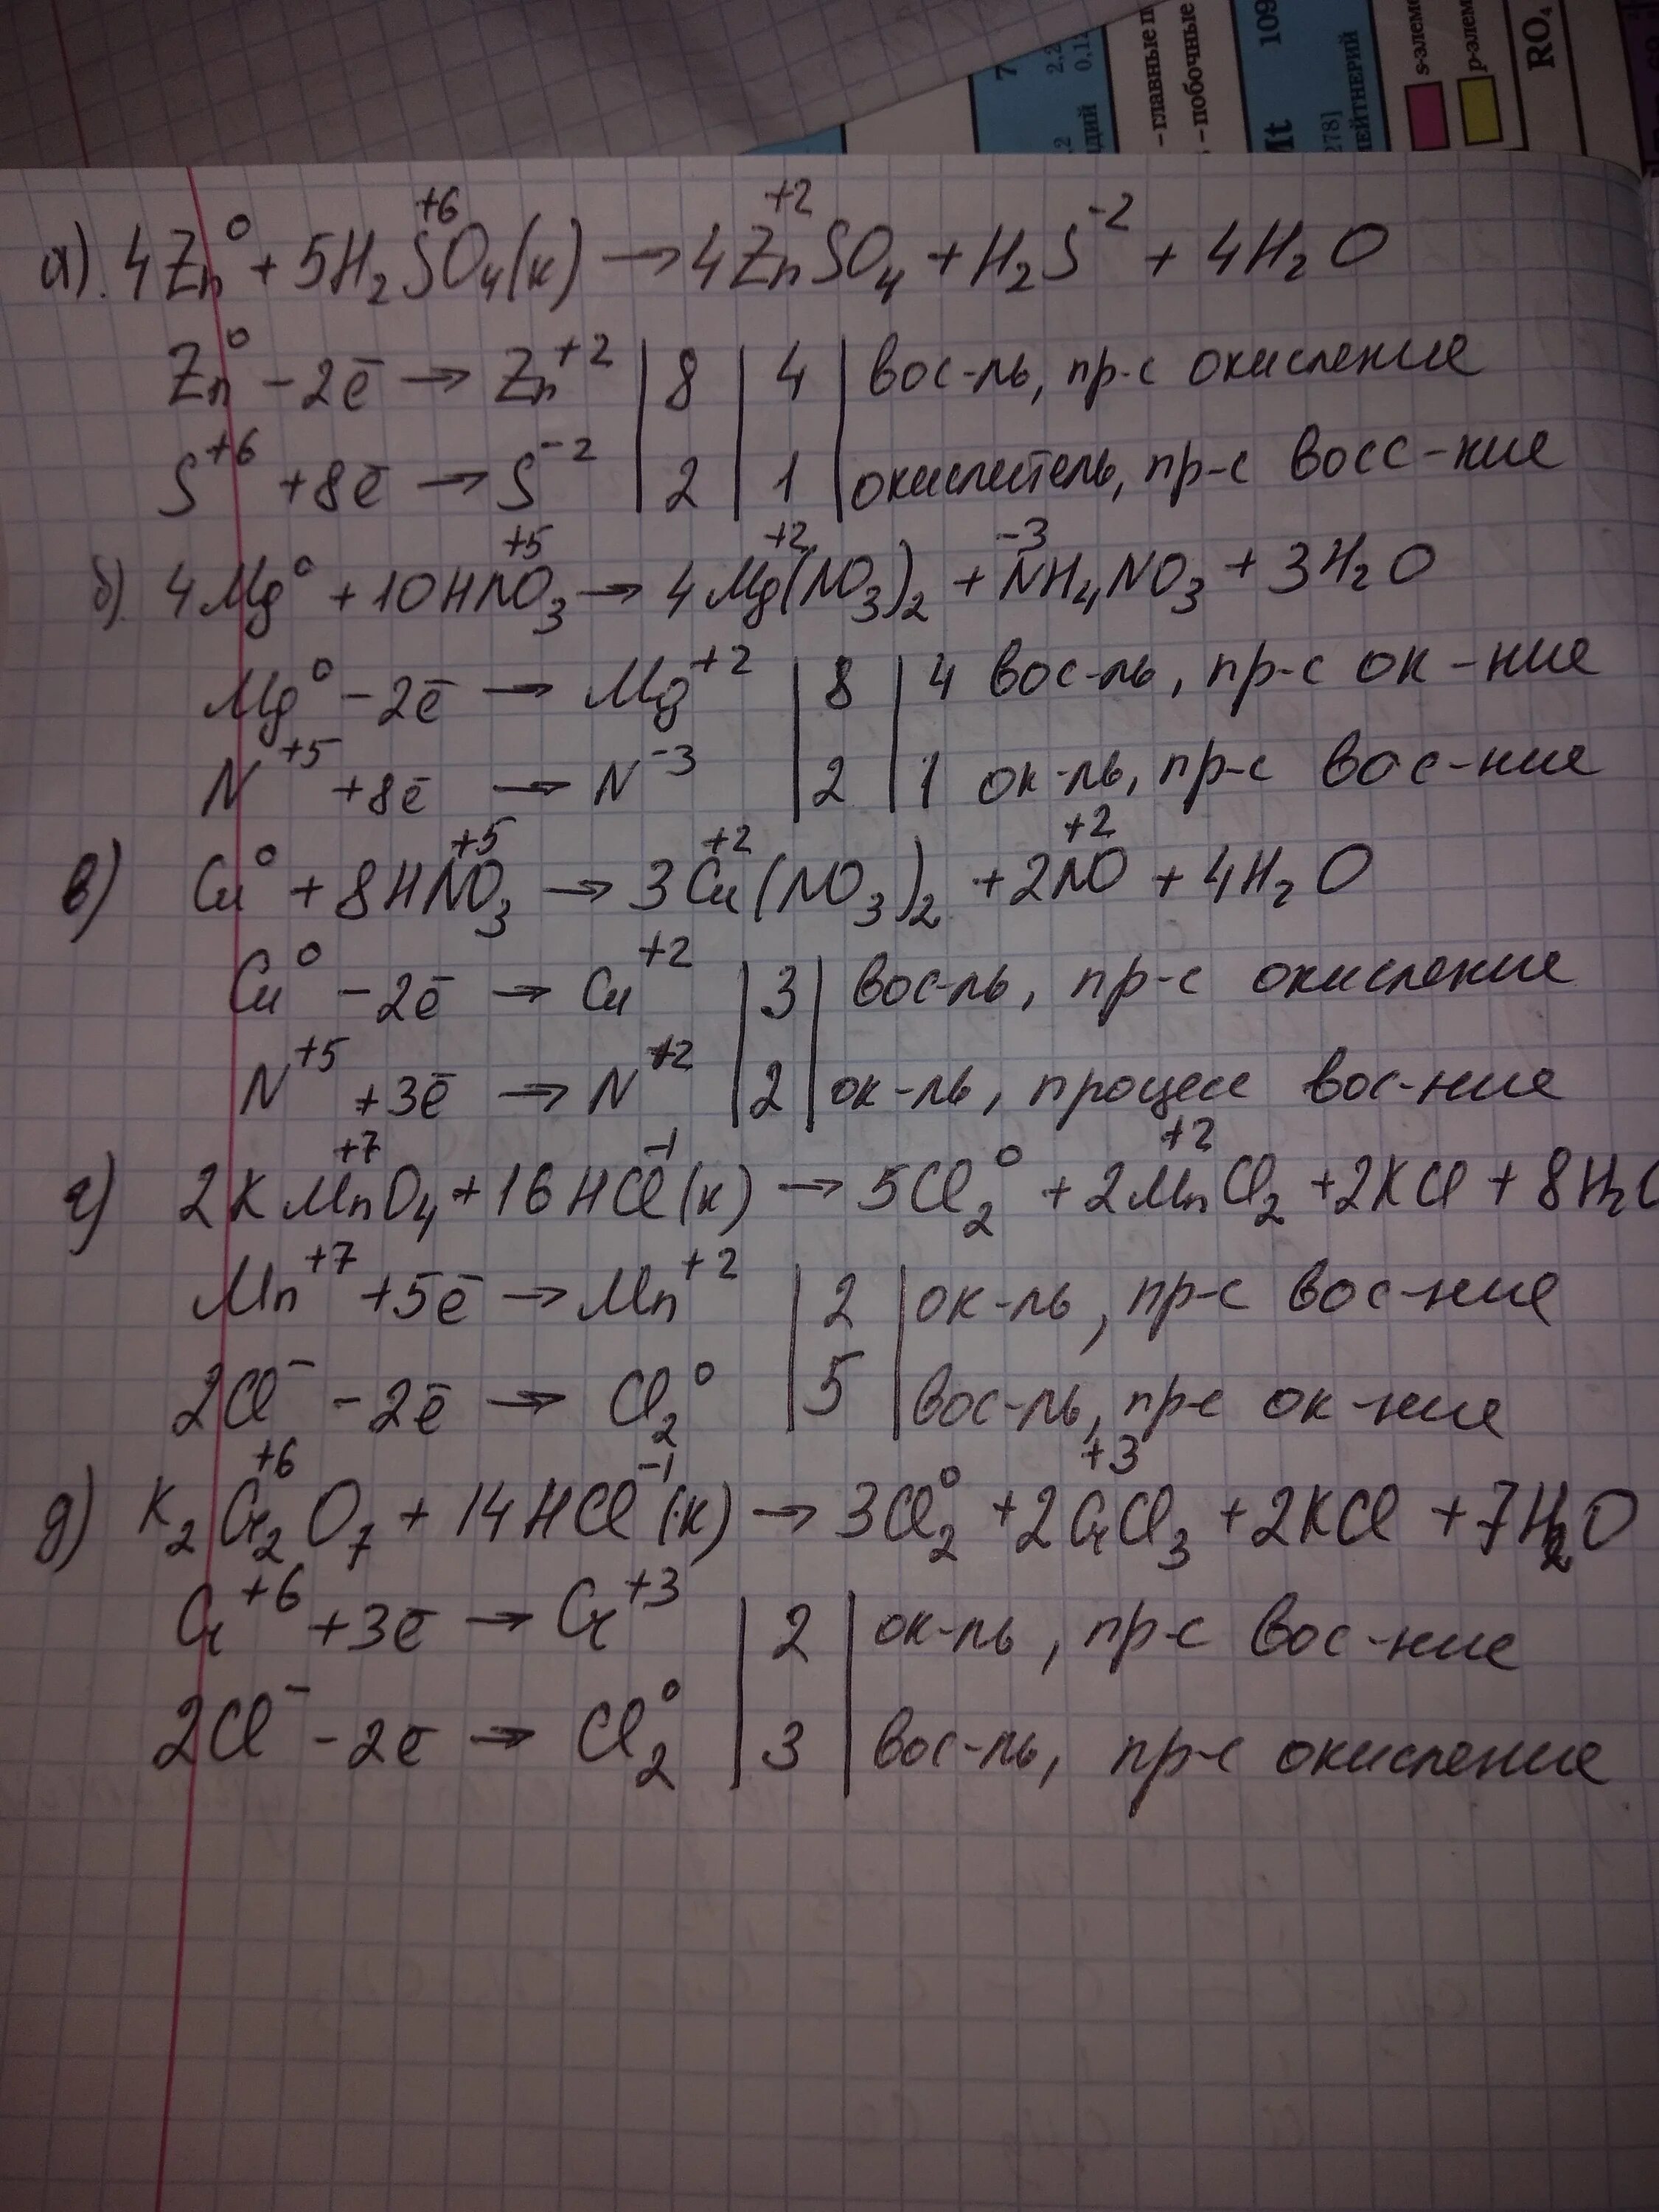 109
7
2,2
0,12
- главные п
- побочные
Mt
[278]
МЕЙТНЕРИЙ
s-элеме
p-элем
RO₄
а). 4Zn⁰ + 5H₂S⁺⁶O₄(к) → 4Zn⁺²SO₄ + H₂S⁻² + 4H₂O
Zn⁰ - 2ē → Zn⁺² | 8 | 4 | вос-ль, пр-с окисление
S⁺⁶ + 8ē → S⁻² | 2 | 1 | окислитель, пр-с восс-ние
б) 4Mg⁰ + 10HN⁺⁵O₃ → 4Mg⁺²(NO₃)₂ + N⁻³H₄NO₃ + 3H₂O
Mg⁰ - 2ē → Mg⁺² | 8 | 4 вос-ль, пр-с ок-ние
N⁺⁵ + 8ē → N⁻³ | 2 | 1 ок-ль, пр-с вос-ние
в) Cu⁰ + 8HN⁺⁵O₃ → 3Cu⁺²(NO₃)₂ + 2N⁺²O + 4H₂O
Cu⁰ - 2ē → Cu⁺² | 3 | вос-ль, пр-с окисление
N⁺⁵ + 3ē → N⁺² | 2 | ок-ль, процесс вос-ние
г) 2KMn⁺⁷O₄ + 16HCl⁻¹(к) → 5Cl₂⁰ + 2Mn⁺²Cl₂ + 2KCl + 8H₂O
Mn⁺⁷ + 5ē → Mn⁺² | 2 | ок-ль, пр-с вос-ние
2Cl⁻ - 2ē → Cl₂⁰ | 5 | вос-ль, пр-с ок-ние
д) K₂Cr⁺⁶₂O₇ + 14HCl⁻¹(к) → 3Cl₂⁰ + 2Cr⁺³Cl₃ + 2KCl + 7H₂O
Cr⁺⁶ + 3ē → Cr⁺³ | 2 | ок-ль, пр-с вос-ние
2Cl⁻ - 2ē → Cl₂⁰ | 3 | вос-ль, пр-с окисление